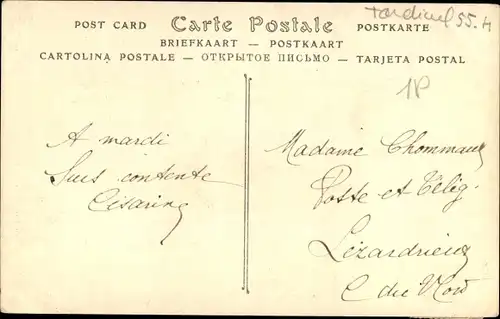 POST CARD Carte Postale POSTKARTE
BRIEFKAART — POSTKAART
CARTOLINA POSTALE — ОТКРЫТОЕ ПИСЬМО — TARJETA POSTAL
55.
1P
A mardi
Suis contente
Césarine
Madame Chommaux
Poste et Télég.
Lézardrieux
C du Nord